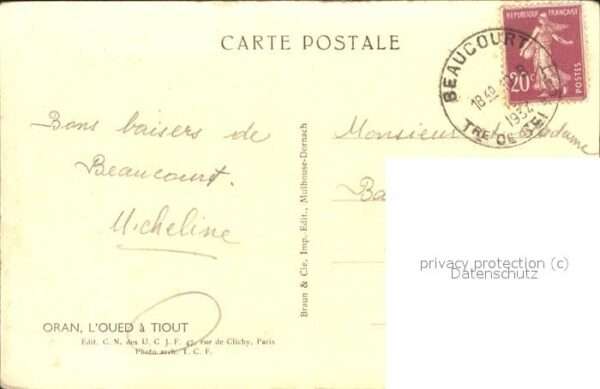 CARTE POSTALE
RÉPUBLIQUE FRANÇAISE
20c
POSTES
BEAUCOURT
18 30
1934
TRE DE BEL
Bons baisers de
Beaucourt.
Micheline
Monsieur et Madame
Ba
Braun & Cie, Imp.-Edit., Mulhouse-Dornach
privacy protection (c)
Datenschutz
ORAN, L'OUED à TIOUT
Edit. C. N. des U C J. F. 47, rue de Clichy, Paris
Photo arch. T. C. F.